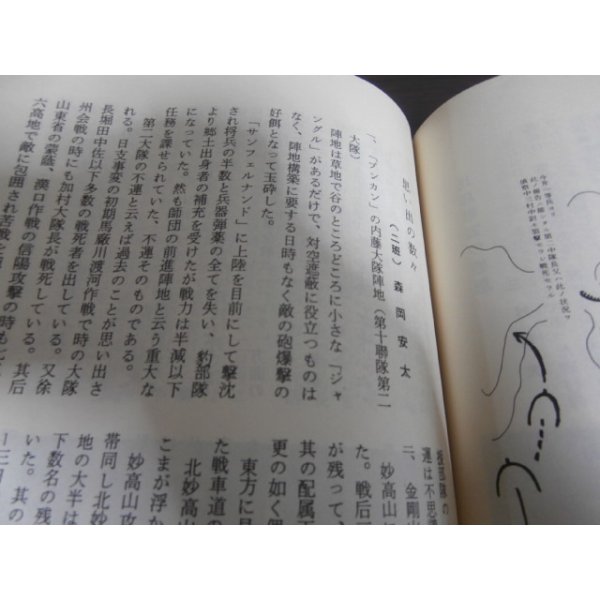 思い出の数々
(二班) 森岡安太
一、「プンカン」の内藤大隊陣地(第十聯隊第二
大隊)
陣地は草地で谷のところどころに小さな「ジャ
ングル」があるだけで、対空遮蔽に役立つものは
なく、陣地構築に要する日時もなく敵の砲爆撃の
好餌となって玉砕した。
「サンフェルナンド」に上陸を目前にして撃沈
され将兵の半数と兵器弾薬の全てを失い、豹部隊
より郷土出身者の補充を受けたが戦力は半減以下
になっていた。然も師団の前進陣地と云う重大な
任務を課せられていた、不運そのものである。
第二大隊の不運と云えば過去のことが思い出さ
れる。日支事変の初期馬厰川渡河作戦で時の大隊
長堀田中佐以下多数の戦死者を出している。又徐
州会戦の時にも加村大隊長が戦死している。其后
山東省の蒙蔭、漢口作戦の信陽攻撃の時も
六高地で敵に包囲され苦戦
運は不思
二、金剛山
妙高山
た。戦后
が残って、
其の配属
更の如く
東方に
た戦車道の
北妙高山
こまが浮か
妙高山攻
帯同し北妙
地の大半は
下数名の残
いた。其の